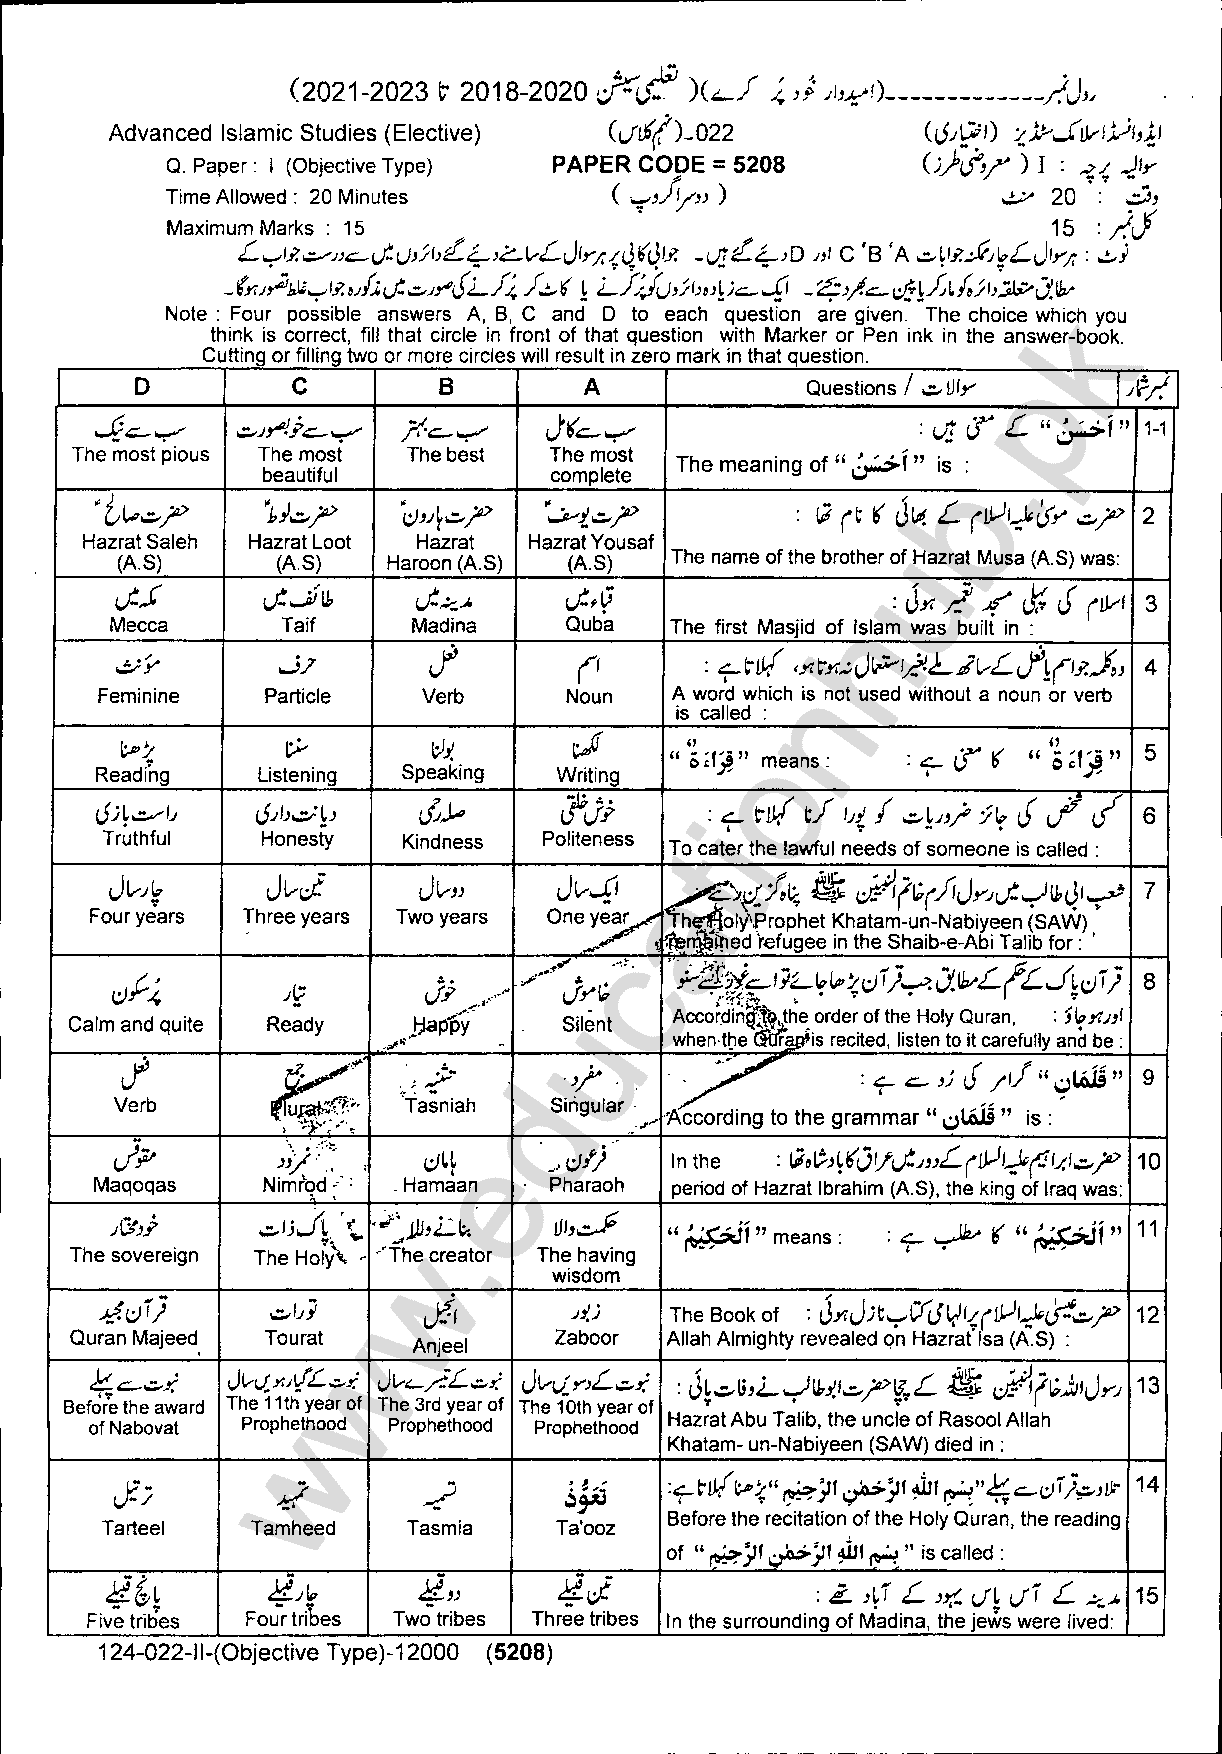 رول نمبر ---------------(امیدوار خود پُر کرے)( تعلیمی سیشن 2020-2018 تا 2023-2021)
Advanced Islamic Studies (Elective) 022-(نہم کلاس) ایڈوانسڈ اسلامک سٹڈیز (اختیاری)
Q. Paper : I (Objective Type) PAPER CODE = 5208 سوالیہ پرچہ : I ( معروضی طرز)
Time Allowed : 20 Minutes ( دوسرا گروپ ) وقت : 20 منٹ
Maximum Marks : 15 کل نمبر : 15
نوٹ : ہر سوال کے چار ممکنہ جوابات A ،B ،C اور D دیے گئے ہیں۔ جوابی کاپی پر ہر سوال کے سامنے دیے گئے دائروں میں سے درست جواب کے
مطابق متعلقہ دائرہ کو مارکر یا پین سے بھر دیجئے۔ ایک سے زیادہ دائروں کو پُر کرنے یا کاٹ کر پُر کرنے کی صورت میں مذکورہ جواب غلط تصور ہو گا۔
Note : Four possible answers A, B, C and D to each question are given. The choice which you
think is correct, fill that circle in front of that question with Marker or Pen ink in the answer-book.
Cutting or filling two or more circles will result in zero mark in that question.
D C B A Questions / سوالات نمبر شمار
سب سے نیک سب سے خوبصورت سب سے بہتر سب سے کامل "اَحْسَنُ" کے معنی ہیں : 1-1
The most pious The most beautiful The best The most complete The meaning of "اَحْسَنُ" is :
حضرت صالحؑ حضرت لوطؑ حضرت ہارونؑ حضرت یوسفؑ حضرت موسیٰ علیہ السلام کے بھائی کا نام تھا : 2
Hazrat Saleh (A.S) Hazrat Loot (A.S) Hazrat Haroon (A.S) Hazrat Yousaf (A.S) The name of the brother of Hazrat Musa (A.S) was:
مکہ میں طائف میں مدینہ میں قباء میں اسلام کی پہلی مسجد تعمیر ہوئی : 3
Mecca Taif Madina Quba The first Masjid of Islam was built in :
مونث حرف فعل اسم وہ کلمہ جو اسم یا فعل کے ساتھ ملے بغیر استعمال نہ ہوتا ہو، کہلاتا ہے : 4
Feminine Particle Verb Noun A word which is not used without a noun or verb
is called :
پڑھنا سننا بولنا لکھنا "قِرَاءَةٌ" کا معنی ہے : 5
Reading Listening Speaking Writing "قِرَاءَةٌ" means :
راست بازی دیانت داری صلہ رحمی خوش خلقی کسی شخص کی جائز ضروریات کو پورا کرنا کہلاتا ہے : 6
Truthful Honesty Kindness Politeness To cater the lawful needs of someone is called :
چار سال تین سال دو سال ایک سال شعب ابی طالب میں رسول اکرم خاتم النبیین ﷺ پناہ گزین رہے 7
Four years Three years Two years One year The Holy Prophet Khatam-un-Nabiyeen (SAW)
remained refugee in the Shaib-e-Abi Talib for :
پُرسکون تیار خوش خاموش قرآن پاک کے حکم کے مطابق جب قرآن پڑھا جائے تو اسے غور سے سنو 8
اور ہو جاؤ :
Calm and quite Ready Happy Silent According to the order of the Holy Quran,
when the Quran is recited, listen to it carefully and be :
فعل جمع تثنیہ مفرد "قَلَمَانِ" گرامر کی رُو سے ہے : 9
Verb Plural Tasniah Singular According to the grammar "قَلَمَانِ" is :
مقوقس نمرود ہامان فرعون حضرت ابراہیم علیہ السلام کے دور میں عراق کا بادشاہ تھا : 10
Maqoqas Nimrod Hamaan Pharaoh In the period of Hazrat Ibrahim (A.S), the king of Iraq was:
خودمختار پاک ذات بنانے والا حکمت والا "اَلْحَكِيْمُ" کا مطلب ہے : 11
The sovereign The Holy The creator The having wisdom "اَلْحَكِيْمُ" means :
قرآن مجید تورات انجیل زبور حضرت عیسیٰ علیہ السلام پر الہامی کتاب نازل ہوئی : 12
Quran Majeed Tourat Anjeel Zaboor The Book of
Allah Almighty revealed on Hazrat Isa (A.S) :
نبوت سے پہلے نبوت کے گیارہویں سال نبوت کے تیسرے سال نبوت کے دسویں سال رسول اللہ خاتم النبیین ﷺ کے چچا حضرت ابوطالب نے وفات پائی : 13
Before the award of Nabovat The 11th year of Prophethood The 3rd year of Prophethood The 10th year of Prophethood Hazrat Abu Talib, the uncle of Rasool Allah
Khatam- un-Nabiyeen (SAW) died in :
ترتیل تمہید تسمیہ تَعَوُّذ تلاوت قرآن سے پہلے "بِسْمِ اللهِ الرَّحْمٰنِ الرَّحِيْمِ" پڑھنا کہلاتا ہے : 14
Tarteel Tamheed Tasmia Ta'ooz Before the recitation of the Holy Quran, the reading
of "بِسْمِ اللهِ الرَّحْمٰنِ الرَّحِيْمِ" is called :
پانچ قبیلے چار قبیلے دو قبیلے تین قبیلے مدینہ کے آس پاس یہود کے آباد تھے : 15
Five tribes Four tribes Two tribes Three tribes In the surrounding of Madina, the jews were lived:
124-022-II-(Objective Type)-12000 (5208)
www.educationhub.pk